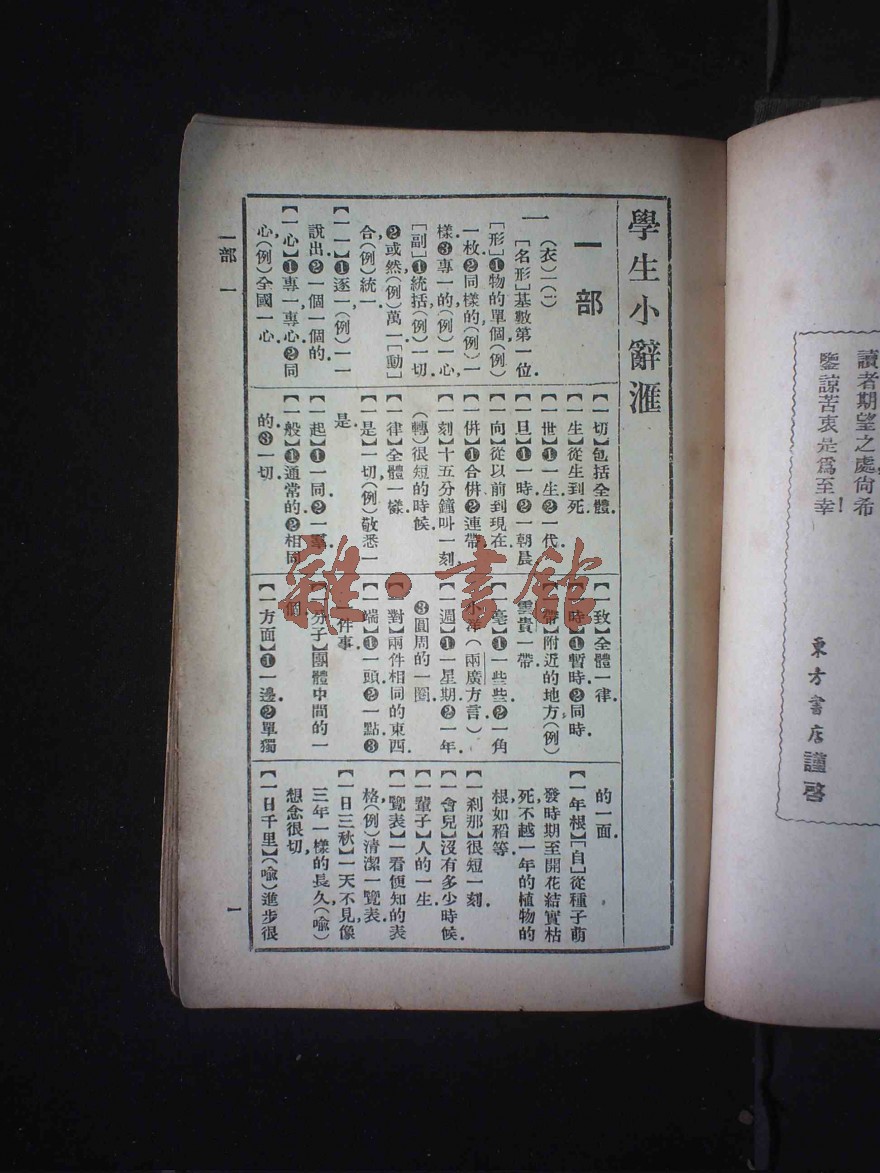 讀者期望之處尙希
鑒諒苦衷是爲至幸!
東方書店謹啓
學生小辭滙
一部
一
(衣)ㄧ(ㄧ)
[名形]基數第一位.
[形]❶物的單個(例)
一枚❷同樣的(例)一
樣❸專一的(例)一心,
[副]❶統括(例)一切
❷或然(例)萬一[動]
合(例)統一.
【一一】❶逐一(例)一一
說出❷一個一個的.
【一心】❶專一,專心❷同
心(例)全國一心.
【一切】包括全體.
【一生】從生到死.
【一世】❶一生❷一代.
【一旦】❶一時❷一朝晨
【一向】從以前到現在.
【一併】❶合併❷連帶.
【一刻】十五分鐘叫一刻
(轉)很短的時候.
【一律】全體一樣.
【一是】一切(例)敬悉一
是.
【一起】❶一同❷一羣.
【一般】❶通常的❷相同
的❸一切.
【一致】全體一律.
【一時】❶暫時❷同時.
【一帶】附近的地方(例)
雲貴一帶
【一毫】❶一些些❷一角
小洋(兩廣方言.)
【一週】❶一星期❷一年
❸圓周的一圈.
【一對】兩件相同的東西
【一端】❶一頭❷一點❸
一件事.
【一分子】團體中間的一
個.
【一方面】❶一邊❷單獨
的一面.
【一年根】[自]從種子萌
發時期至開花結實枯
死不越一年的植物的
根,如稻等.
【一刹那】很短一刻.
【一會兒】沒有多少時候.
【一輩子】人的一生.
【一覽表】一看便知的表
格(例)清潔一覽表.
【一日三秋】一天不見像
三年一樣的長久(喩)
想念很切.
【一日千里】(喩)進步很
一部 一
一
雜·書館